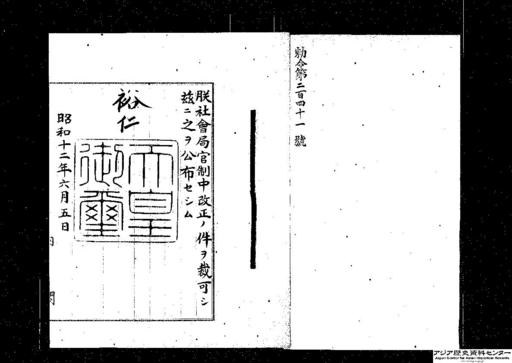 勅令第二百四十一號
朕社會局官制中改正ノ件ヲ裁可シ
玆ニ之ヲ公布セシム
裕仁
天皇
御璽
昭和十二年六月五日
アジア歴史資料センター
Japan Center for Asian Historical Records